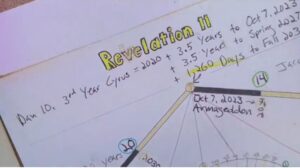 Revelation 11
Dan 10. 3rd Year Cyrus = 2020 + 3.5 Years to Oct 7, 2023
+ 3.5 Years to Spring 2027
+ 1,260 Days to Fall 203
14
Jar
Oct 7, 2023 →
Armageddon
20
years
2030